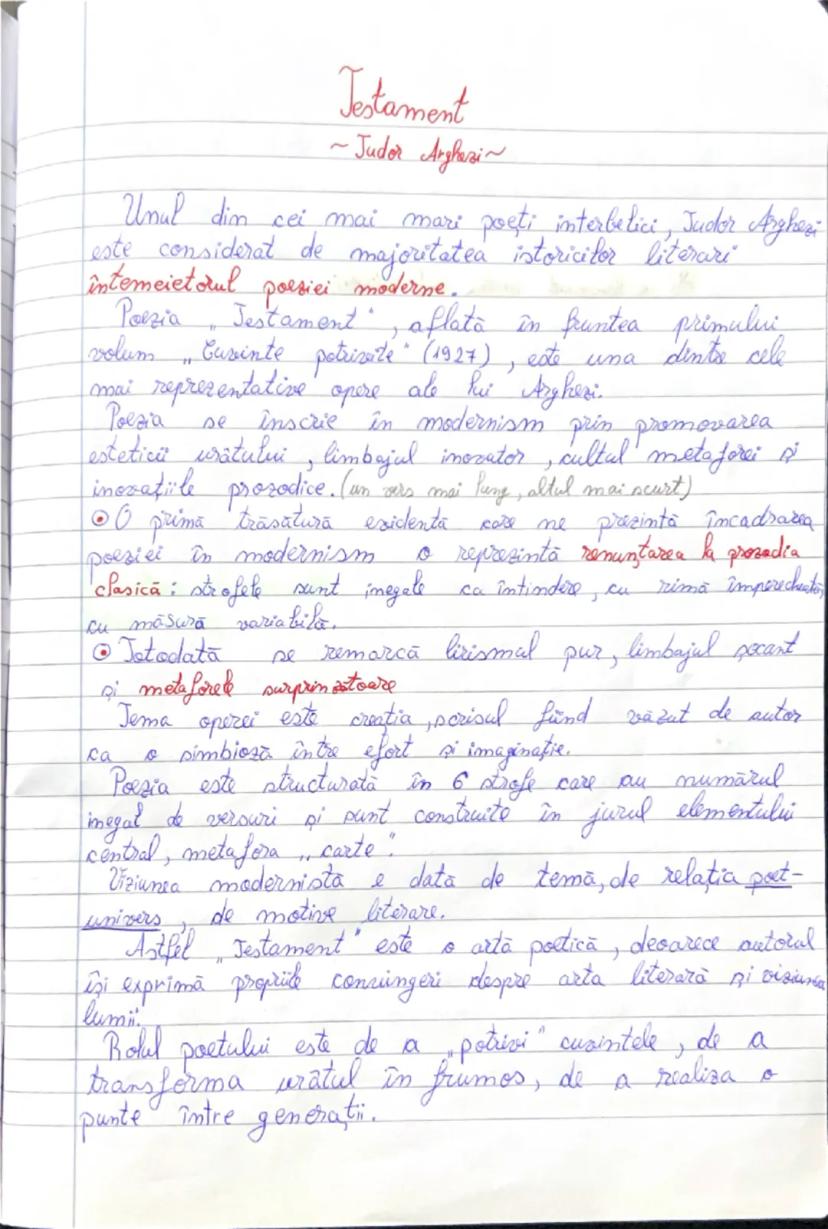 Testament
~ Tudor Arghezi ~
Unul din cei mai mari poeți interbelici, Tudor Arghezi
este considerat de majoritatea istoricilor literari
întemeietorul poeziei moderne.
Poezia „Testament", aflată în fruntea primului
volum „Cuvinte potrivite" (1927), este una dintre cele
mai reprezentative opere ale lui Arghezi.
Poezia se înscrie în modernism prin promovarea
esteticii urâtului, limbajul inovator, cultul metaforei și
inovațiile prozodice. (un vers mai lung, altul mai scurt)
O primă trăsătură evidentă care ne prezintă încadrarea
poeziei în modernism o reprezintă renunțarea la prozodia
clasică: strofele sunt inegale ca întindere, cu rimă împerecheată,
cu măsură variabilă.
Totodată se remarcă lirismul pur, limbajul șocant
și metaforele surprinzătoare
Tema operei este creația, scrisul fiind văzut de autor
ca o simbioză între efort și imaginație.
Poezia este structurată în 6 strofe care au numărul
inegal de versuri și sunt construite în jurul elementului
central, metafora „carte".
Viziunea modernistă e dată de temă, de relația poet-
univers, de motive literare.
Astfel „Testament" este o artă poetică, deoarece autorul
își exprimă propriile convingeri despre arta literară și viziunea
lumii.
Rolul poetului este de a „potrivi" cuvintele, de a
transforma urâtul în frumos, de a realiza o
punte între generații.